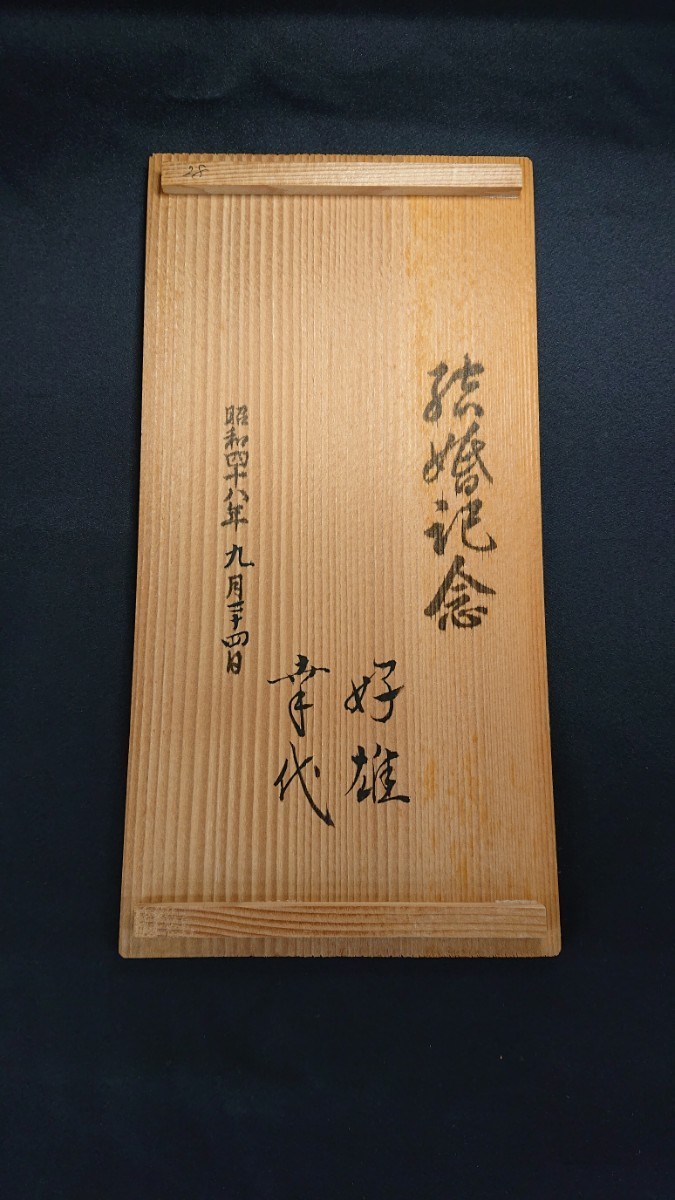 結婚記念
好雄
幸代
昭和四十八年 九月二十四日
28